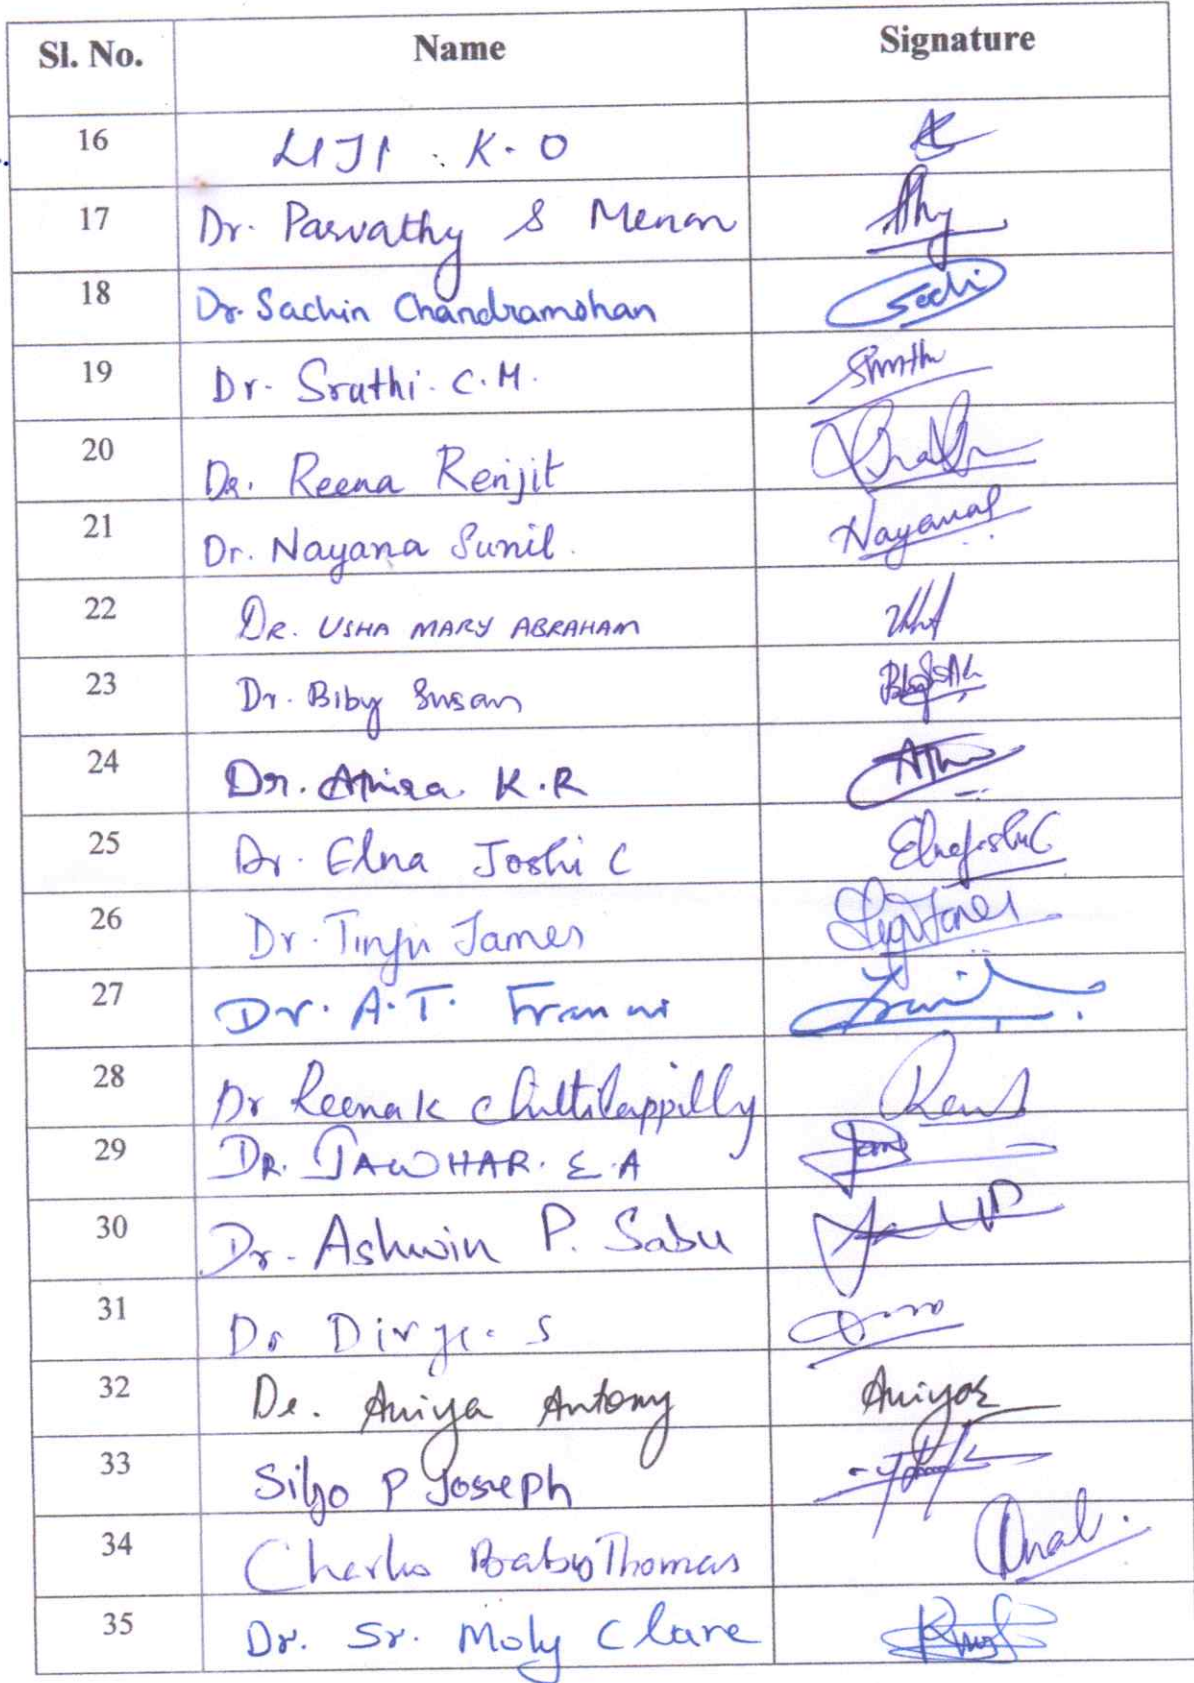 Sl. No. Name Signature
16 LIJI . K. O
17 Dr. Parvathy S Menon
18 Dr. Sachin Chandramohan Sachi
19 Dr. Sruthi. C. M. Sruthi
20 Dr. Reena Renjit
21 Dr. Nayana Sunil. NayanaS
22 DR. USHA MARY ABRAHAM
23 Dr. Biby Susan
24 Dr. Athira K.R
25 Dr. Elna Joshi C ElnaJoshiC
26 Dr. Tinju James
27 Dr. A.T. Francis
28 Dr Reena K Chittilappilly
29 DR. JAWHAR. E. A
30 Dr. Ashwin P. Sabu
31 Dr Divya. S
32 Dr. Aniya Antony
33 Siljo P Joseph
34 Charles Baby Thomas
35 Dr. Sr. Moly Clare